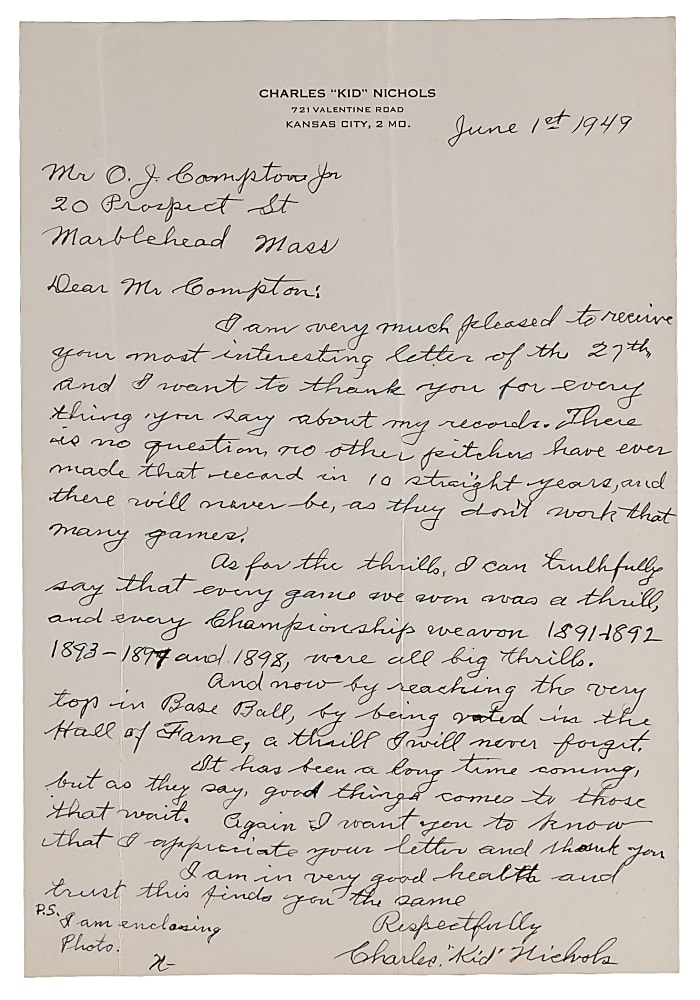 CHARLES "KID" NICHOLS
721 VALENTINE ROAD
KANSAS CITY, 2 MO.
June 1st 1949
Mr O. J. Compton Jr
20 Prospect St
Marblehead Mass
Dear Mr Compton:
I am very much pleased to receive
your most interesting letter of the 27th,
and I want to thank you for every
thing you say about my records. There
is no question, no other pitchers have ever
made that record in 10 straight years, and
there will never be, as they don't work that
many games.
As for the thrills, I can truthfully
say that every game we won was a thrill,
and every Championship we won 1891-1892
1893-1897 and 1898, were all big thrills.
And now by reaching the very
top in Base Ball, by being voted in the
Hall of Fame, a thrill I will never forget.
It has been a long time coming,
but as they say, good things comes to those
that wait. Again I want you to know
that I appriciate your letter and thank you
I am in very good health and
trust this finds you the same
Respectfully
Charles "Kid" Nichols
P.S. I am enclosing
Photo.
N-